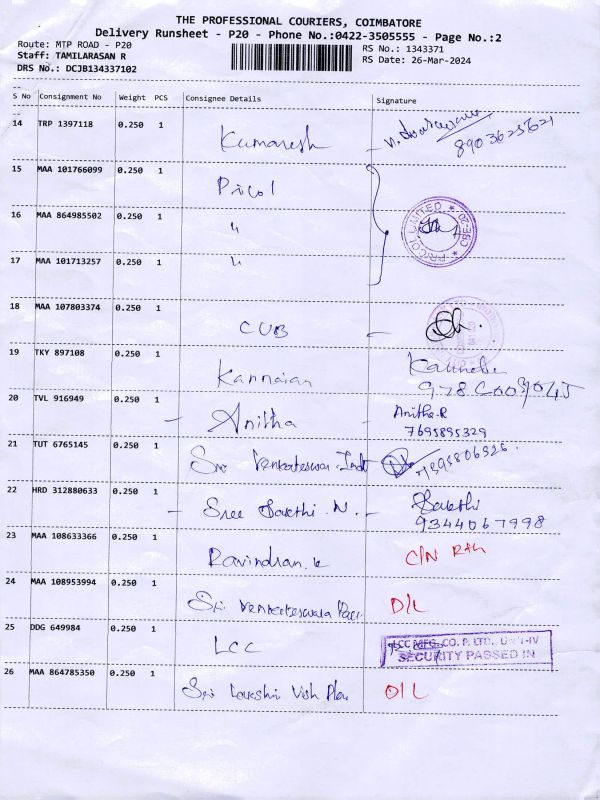 THE PROFESSIONAL COURIERS, COIMBATORE
Delivery Runsheet - P20 - Phone No.:0422-3505555 - Page No.:2
Route: MTP ROAD - P20 RS No.: 1343371
Staff: TAMILARASAN R RS Date: 26-Mar-2024
DRS No.: DCJB134337102
S No Consignment No Weight PCS Consignee Details Signature
14 TRP 1397118 0.250 1 Kumaresh 8903625621
15 MAA 101766099 0.250 1 Pricol
16 MAA 864985502 0.250 1 "
PRICOL LIMITED * CBE-20 *
17 MAA 101713257 0.250 1 "
18 MAA 107803374 0.250 1 CUB
19 TKY 897108 0.250 1 Kannaian
20 TVL 916949 0.250 1 - Anitha Anitha.R
7695895329
21 TUT 6765145 0.250 1 Sri Venkateswara Indt
22 HRD 312880633 0.250 1 - Sree Sakthi .N. - Sakthi
9344067998
23 MAA 108633366 0.250 1 Ravindran.k C/N Rtn
24 MAA 108953994 0.250 1 Sri Venkateswala D/L
25 DDG 649984 0.250 1 LCC
LCC MFG. CO. P. LTD., UNIT-IV
SECURITY PASSED IN
26 MAA 864785350 0.250 1 Sri Lakshmi Vish O/L